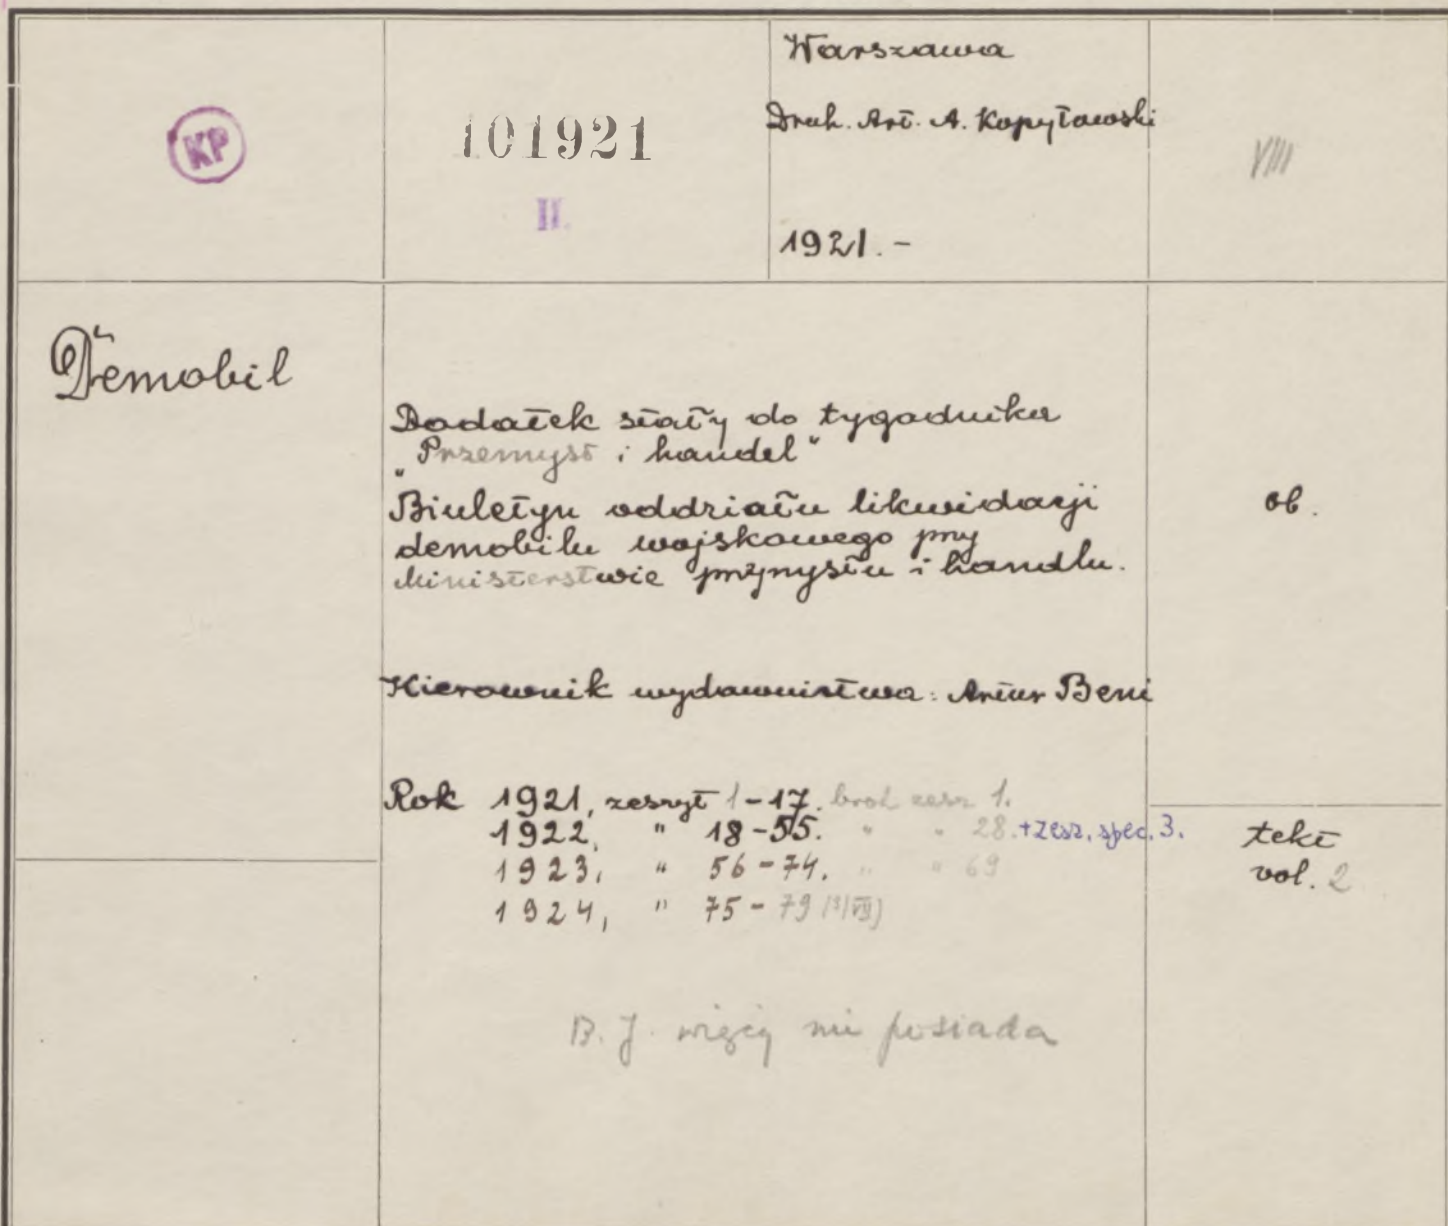 KP
101921
II.
Warszawa
Druk. Art. A. Kopytowski
1921.-
VIII
Demobil
Dodatek stały do tygodnika
„Przemysł i handel"
Biuletyn oddziału likwidacji
demobilu wojskowego przy
Ministerstwie przymysłu i handlu.
ob.
Kierownik wydawnictwa: Artur Beni
Rok 1921, zeszyt 1-17. brak zesz 1.
1922, " 18-55. " " 28. + zesz. spec. 3.
1923, " 56-74. " " 69
1924, " 75-79
tekt
vol. 2
B. J. więcej nie posiada